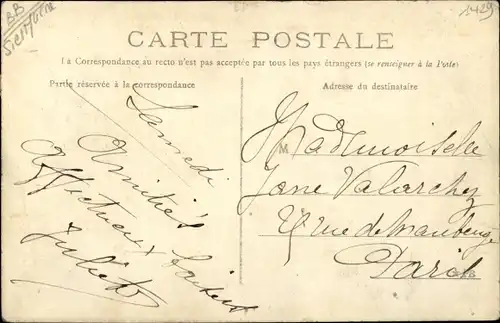 BB
1429
CARTE POSTALE
La Correspondance au recto n'est pas acceptée par tous les pays étrangers (se renseigner à la Poste)
Partie réservée à la correspondance
Adresse du destinataire
Samedi
Amitiés
Affectueux
Juliette
Mademoiselle
Jane
rue de Maubeuge
Paris